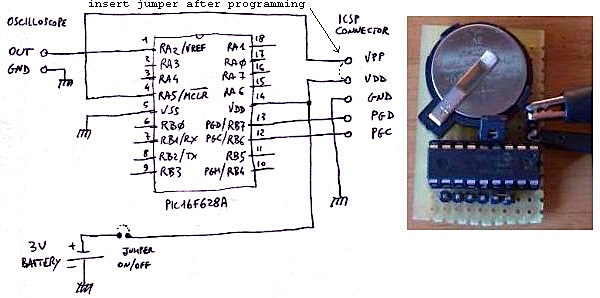 insert jumper after programming
OSCILLOSCOPE
ICSP
CONNECTOR
OUT
GND
1 RA2/VREF
2 RA3
3 RA4
4 RA5/MCLR
5 VSS
6 RBØ
7 RB1/RX
8 RB2/TX
9 RB3
RA1 18
RAØ 17
RA7 16
RA6 15
VDD 14
PGD/RB7 13
PGC/RB6 12
RB5 11
PGM/RB4 10
PIC16F628A
VPP
VDD
GND
PGD
PGC
3V
BATTERY
+
JUMPER
ON/OFF